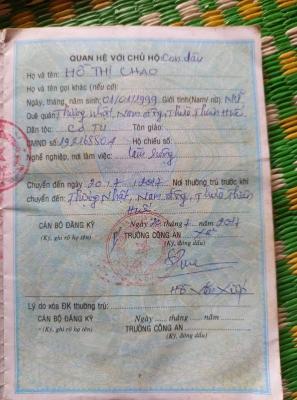 QUAN HỆ VỚI CHỦ HỘ Con dâu
Họ và tên: HỒ THỊ CHAO
Họ và tên gọi khác (nếu có):
Ngày, tháng, năm sinh: 01/01/1999 Giới tính(Nam/ nữ): Nữ
Quê quán: Thượng Nhật, Nam đông, Thừa Thiên Huế
Dân tộc: Cơ Tu Tôn giáo:
CMND số: Hộ chiếu số:
Nghề nghiệp, nơi làm việc: làm ruộng
Chuyển đến ngày 20/7/2017 Nơi thường trú trước khi
chuyển đến: Thượng Nhật, Nam đông, Thừa Thiên
Huế
Ngày 20 tháng 7 năm 2017
CÁN BỘ ĐĂNG KÝ TRƯỞNG CÔNG AN
(Ký, ghi rõ họ tên) (Ký, đóng dấu)
Hồ Văn
Lý do xóa ĐK thường trú:
Ngày ...... tháng ...... năm
CÁN BỘ ĐĂNG KÝ TRƯỞNG CÔNG AN
(Ký, ghi rõ họ tên) (Ký, đóng dấu)